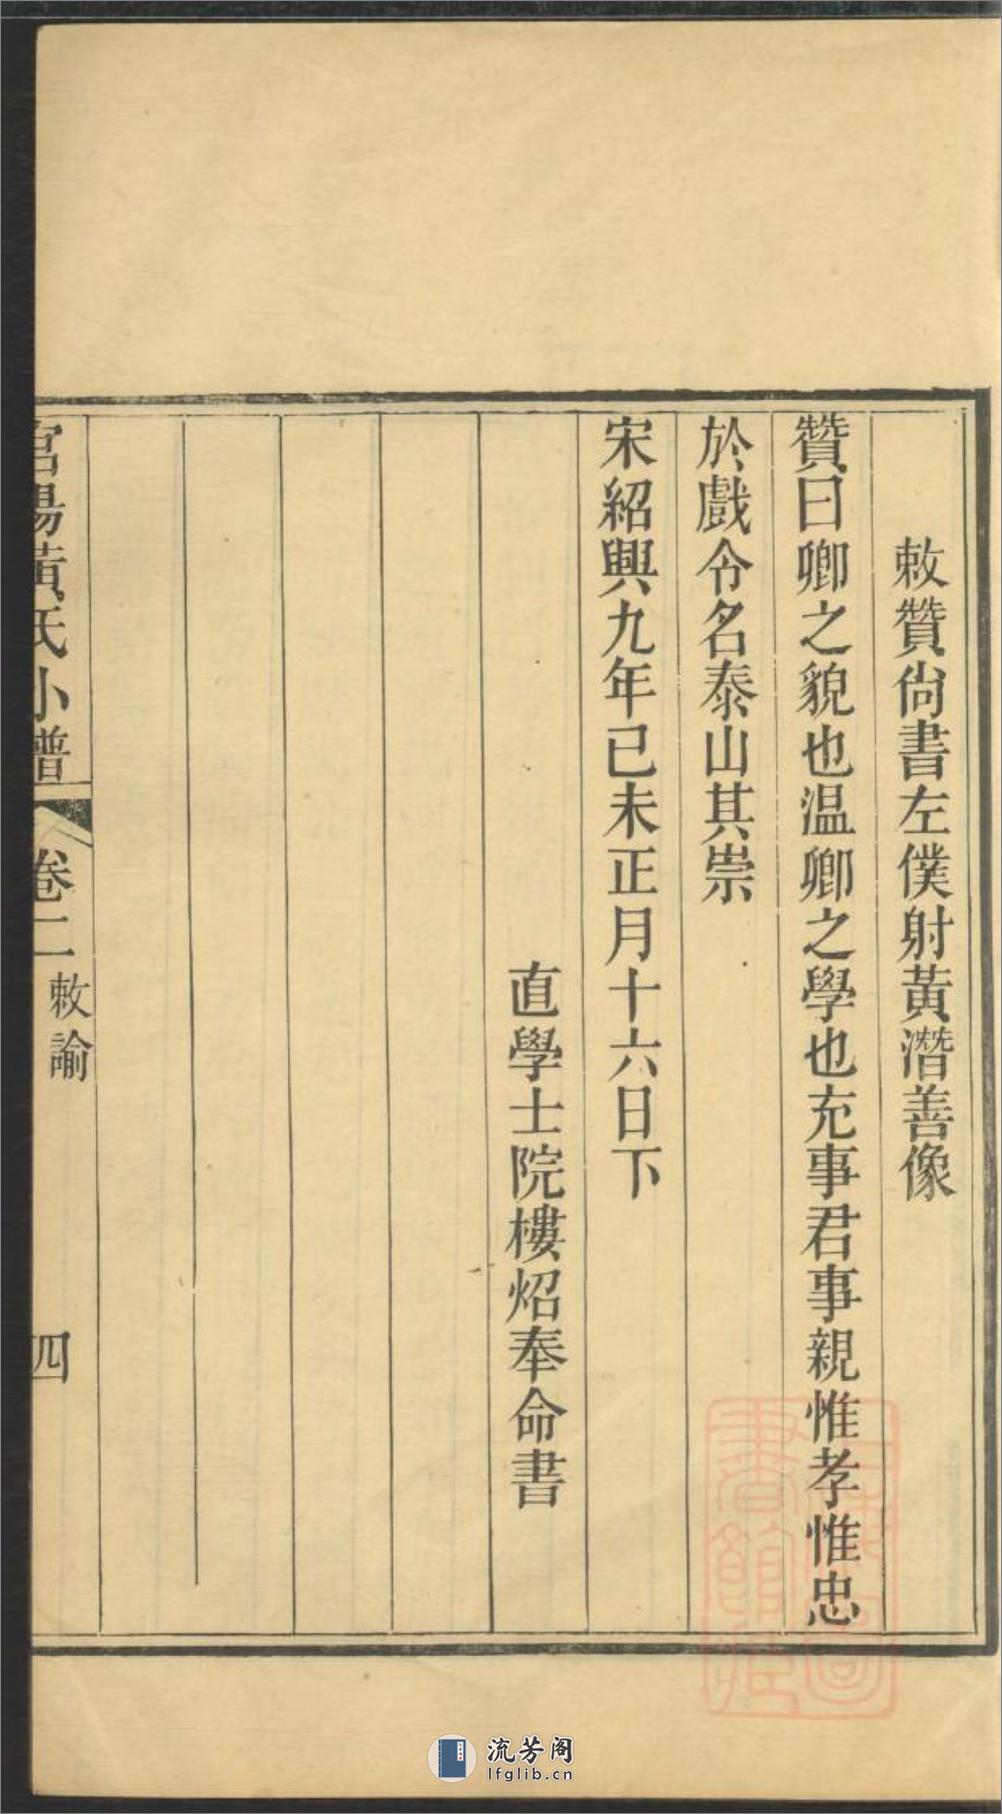 敕贊尙書左僕射黃潛善像
贊曰卿之貌也温卿之學也充事君事親惟孝惟忠
於戲令名泰山其崇
宋紹興九年己未正月十六日下
直學士院樓炤奉命書
黃氏小譜
卷二
敕諭
四
流芳阁
lfglib.cn